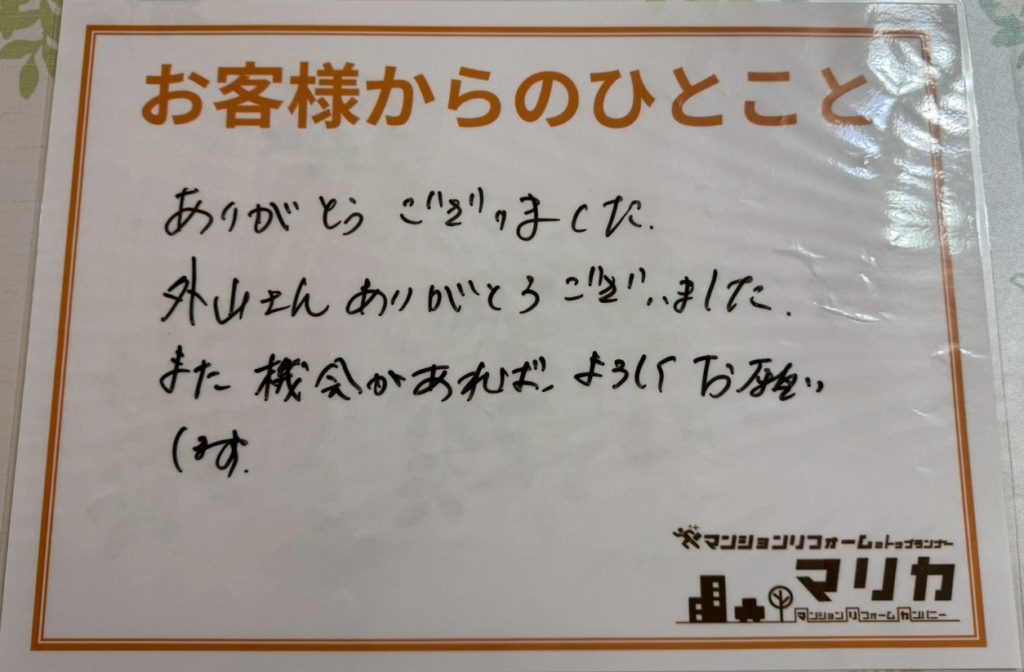 お客様からのひとこと
ありがとうございました.
外山さんありがとうございました.
また機会があれば、よろしくお願い
します.
マンションリフォームのトップランナー
マリカ
マンションリフォームカンパニー